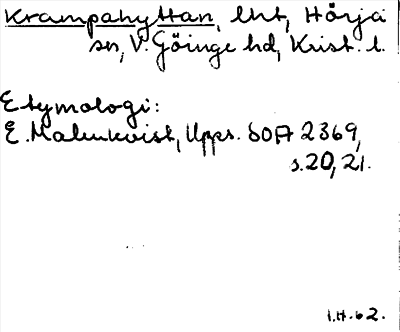 Krampahyttan, lht, Hörja
sn, V. Göinge hd, Krist. l.
Etymologi:
E. Malmkvist, Upps. DOA 2369,
s. 20, 21.
I.H. 62.